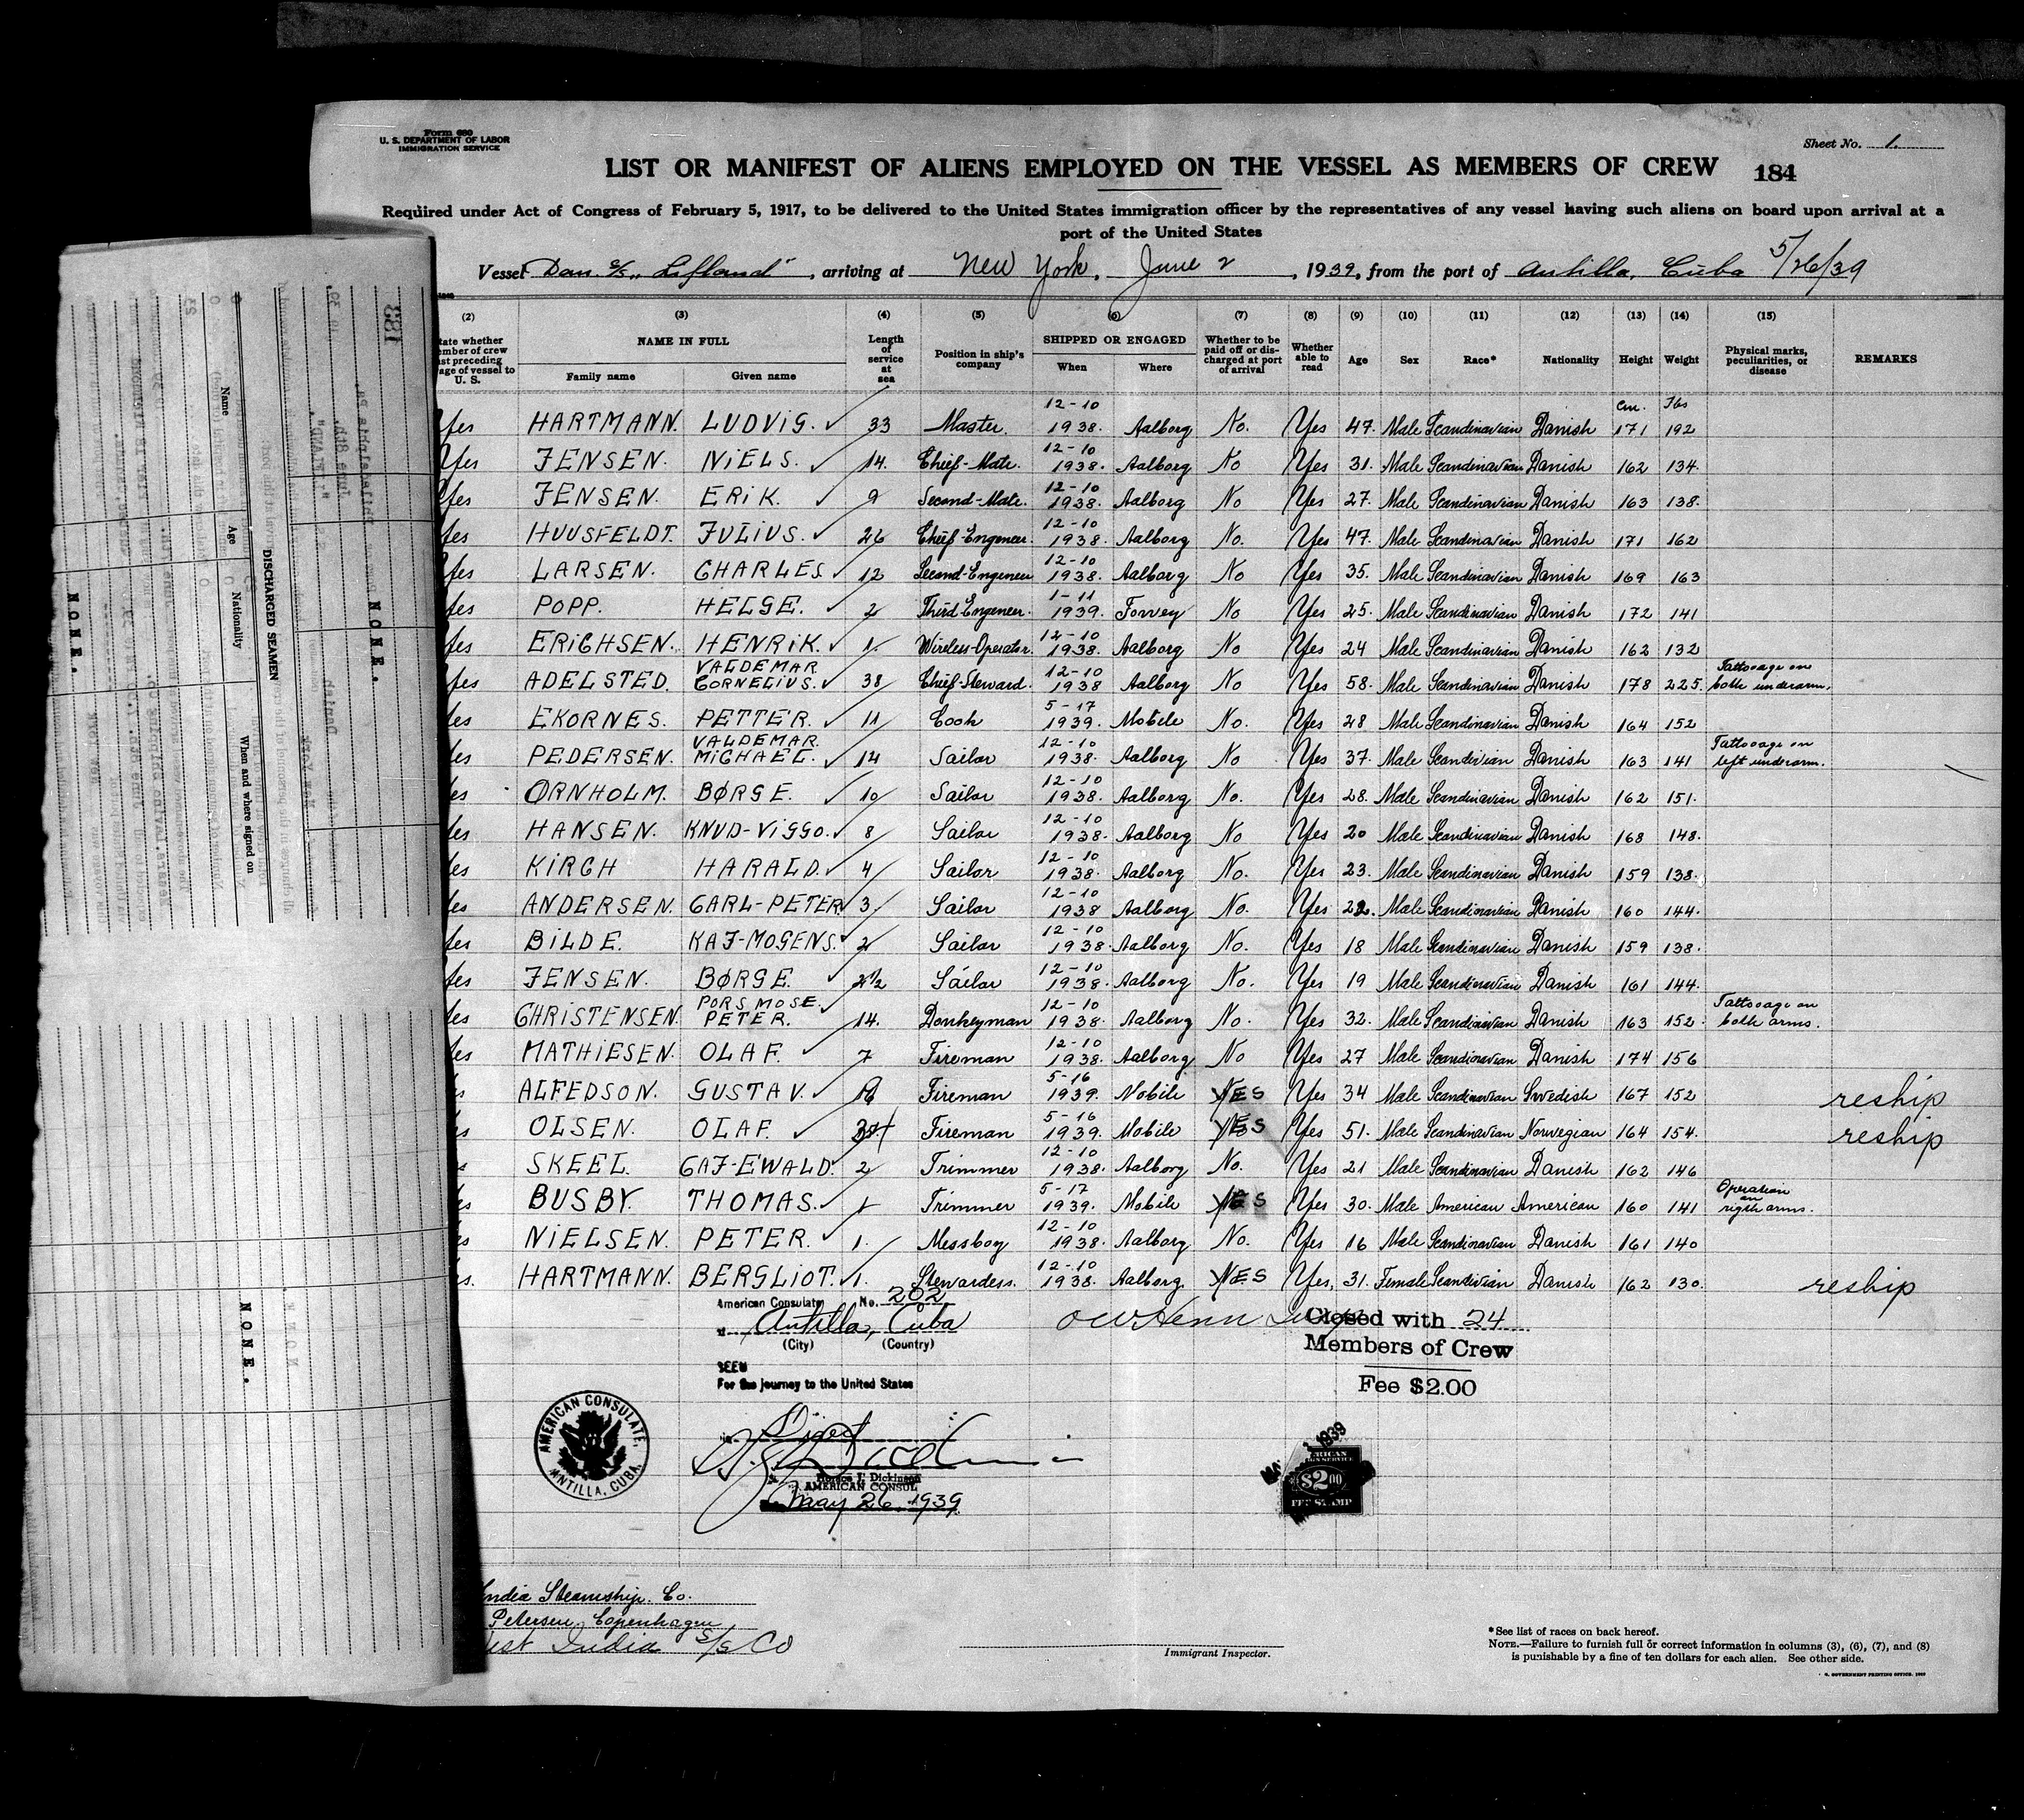 Form 680
U. S. DEPARTMENT OF LABOR
IMMIGRATION SERVICE
Sheet No. 1.
LIST OR MANIFEST OF ALIENS EMPLOYED ON THE VESSEL AS MEMBERS OF CREW 184
Required under Act of Congress of February 5, 1917, to be delivered to the United States immigration officer by the representatives of any vessel having such aliens on board upon arrival at a
port of the United States
Vessel Dan. s/s "Lifland", arriving at New York, June 2, 1939, from the port of Antilla, Cuba 5/26/39
(2) (3) (4) (5) (6) (7) (8) (9) (10) (11) (12) (13) (14) (15)
tate whether
ember of crew
ast preceding
age of vessel to
U. S.
NAME IN FULL
Family name Given name
Length
of
service
at
sea
Position in ship's
company
SHIPPED OR ENGAGED
When Where
Whether to be
paid off or dis-
charged at port
of arrival
Whether
able to
read
Age Sex Race* Nationality Height Weight
Physical marks,
peculiarities, or
disease
REMARKS
cm. lbs
Yes HARTMANN. LUDViG. 33 Master. 12-10 1938. Aalborg No. Yes 47. Male Scandinavian Danish 171 192
Yes JENSEN. NiELS. 14. Chief-Mate. 12-10 1938. Aalborg No Yes 31. Male Scandinavian Danish 162 134.
Yes JENSEN. ERiK. 9 Second-Mate. 12-10 1938. Aalborg No Yes 27. Male Scandinavian Danish 163 138.
Yes HUUSFELDT. JULiUS. 26 Chief-Engeneer. 12-10 1938. Aalborg No. Yes 47. Male Scandinavian Danish 171 162
Yes LARSEN. CHARLES. 12 Second-Engeneer 12-10 1938. Aalborg No Yes 35. Male Scandinavian Danish 169 163
Yes POPP. HELGE. 2 Third Engeneer. 1-11 1939. Forvey No Yes 25. Male Scandinavian Danish 172 141
Yes ERiCHSEN. HENRiK. 1. Wireless-Operator. 12-10 1938. Aalborg No Yes 24 Male Scandinavian Danish 162 132
Yes ADELSTED. VALDEMAR CORNELiUS. 38 Chief-Steward. 12-10 1938 Aalborg No Yes 58. Male Scandinavian Danish 178 225. Tattooage on both underarm.
es EKORNES. PETTER. 11 Cook 5-17 1939. Mobile No. Yes 28 Male Scandinavian Danish 164 152
es PEDERSEN. VALDEMAR. MiCHAEL. 14 Sailor 12-10 1938. Aalborg No Yes 37. Male Scandivian Danish 163 141 Tattooage on left underarm.
es ØRNHOLM. BØRGE. 10 Sailor 12-10 1938. Aalborg No. Yes 28. Male Scandinavian Danish 162 151.
es HANSEN. KNUD-ViGGO. 8 Sailor 12-10 1938. Aalborg No Yes 20 Male Scandinavian Danish 168 148.
es KiRCH HARALD. 4 Sailor 12-10 1938. Aalborg No. Yes 23. Male Scandinavian Danish 159 138.
es ANDERSEN. CARL-PETER 3 Sailor 12-10 1938 Aalborg No. Yes 22. Male Scandinavian Danish 160 144.
es BiLDE. KAJ-MOGENS. 2 Sailor 12-10 1938. Aalborg No. Yes 18 Male Scandinavian Danish 159 138.
es JENSEN. BØRGE. 2½ Sailor 12-10 1938. Aalborg No. Yes 19 Male Scandinavian Danish 161 144.
es CHRiSTENSEN. PORSMOSE. PETER. 14. Donkeyman 12-10 1938. Aalborg No. Yes 32. Male Scandinavian Danish 163 152. Tattooage on both arms.
es MATHiESEN. OLAF. 7 Fireman 12-10 1938. Aalborg No Yes 27 Male Scandinavian Danish 174 156
s ALFEDSON. GUSTAV. 16 Fireman 5-16 1939. Mobile YES Yes 34 Male Scandinavian Swedish 167 152 reship
s OLSEN. OLAF. Fireman 5-16 1939. Mobile YES Yes 51. Male Scandinavian Norwegian 164 154. reship
s SKEEL. CAJ-EWALD. 2 Trimmer 12-10 1938. Aalborg No. Yes 21 Male Scandinavian Danish 162 146
es BUSBY. THOMAS. 1 Trimmer 5-17 1939. Mobile YES Yes 30. Male American American 160 141 Operation on rigth arms.
s NiELSEN. PETER. 1. Messboy 12-10 1938. Aalborg No. Yes 16 Male Scandinavian Danish 161 140
s. HARTMANN. BERGLiOT. 1. Stewardess. 12-10 1938. Aalborg YES Yes, 31. Female Scandivian Danish 162 130. reship
American Consulate No. 202
Antilla, Cuba
(City) (Country)
SEEN
For the journey to the United States
Closed with 24
Members of Crew
Fee $2.00
AMERICAN CONSULATE,
ANTILLA, CUBA.
Horace J. Dickinson
AMERICAN CONSUL
May 26, 1939
1939
$2.00
FEE STAMP
India Steamship. Co.
Petersen, Copenhagen
West India S/S Co
Immigrant Inspector.
*See list of races on back hereof.
NOTE.—Failure to furnish full or correct information in columns (3), (6), (7), and (8)
is punishable by a fine of ten dollars for each alien. See other side.
U. S. GOVERNMENT PRINTING OFFICE
183
DISCHARGED SEAMEN
Name Age Nationality When and where signed on
NONE.
NONE.
NONE.